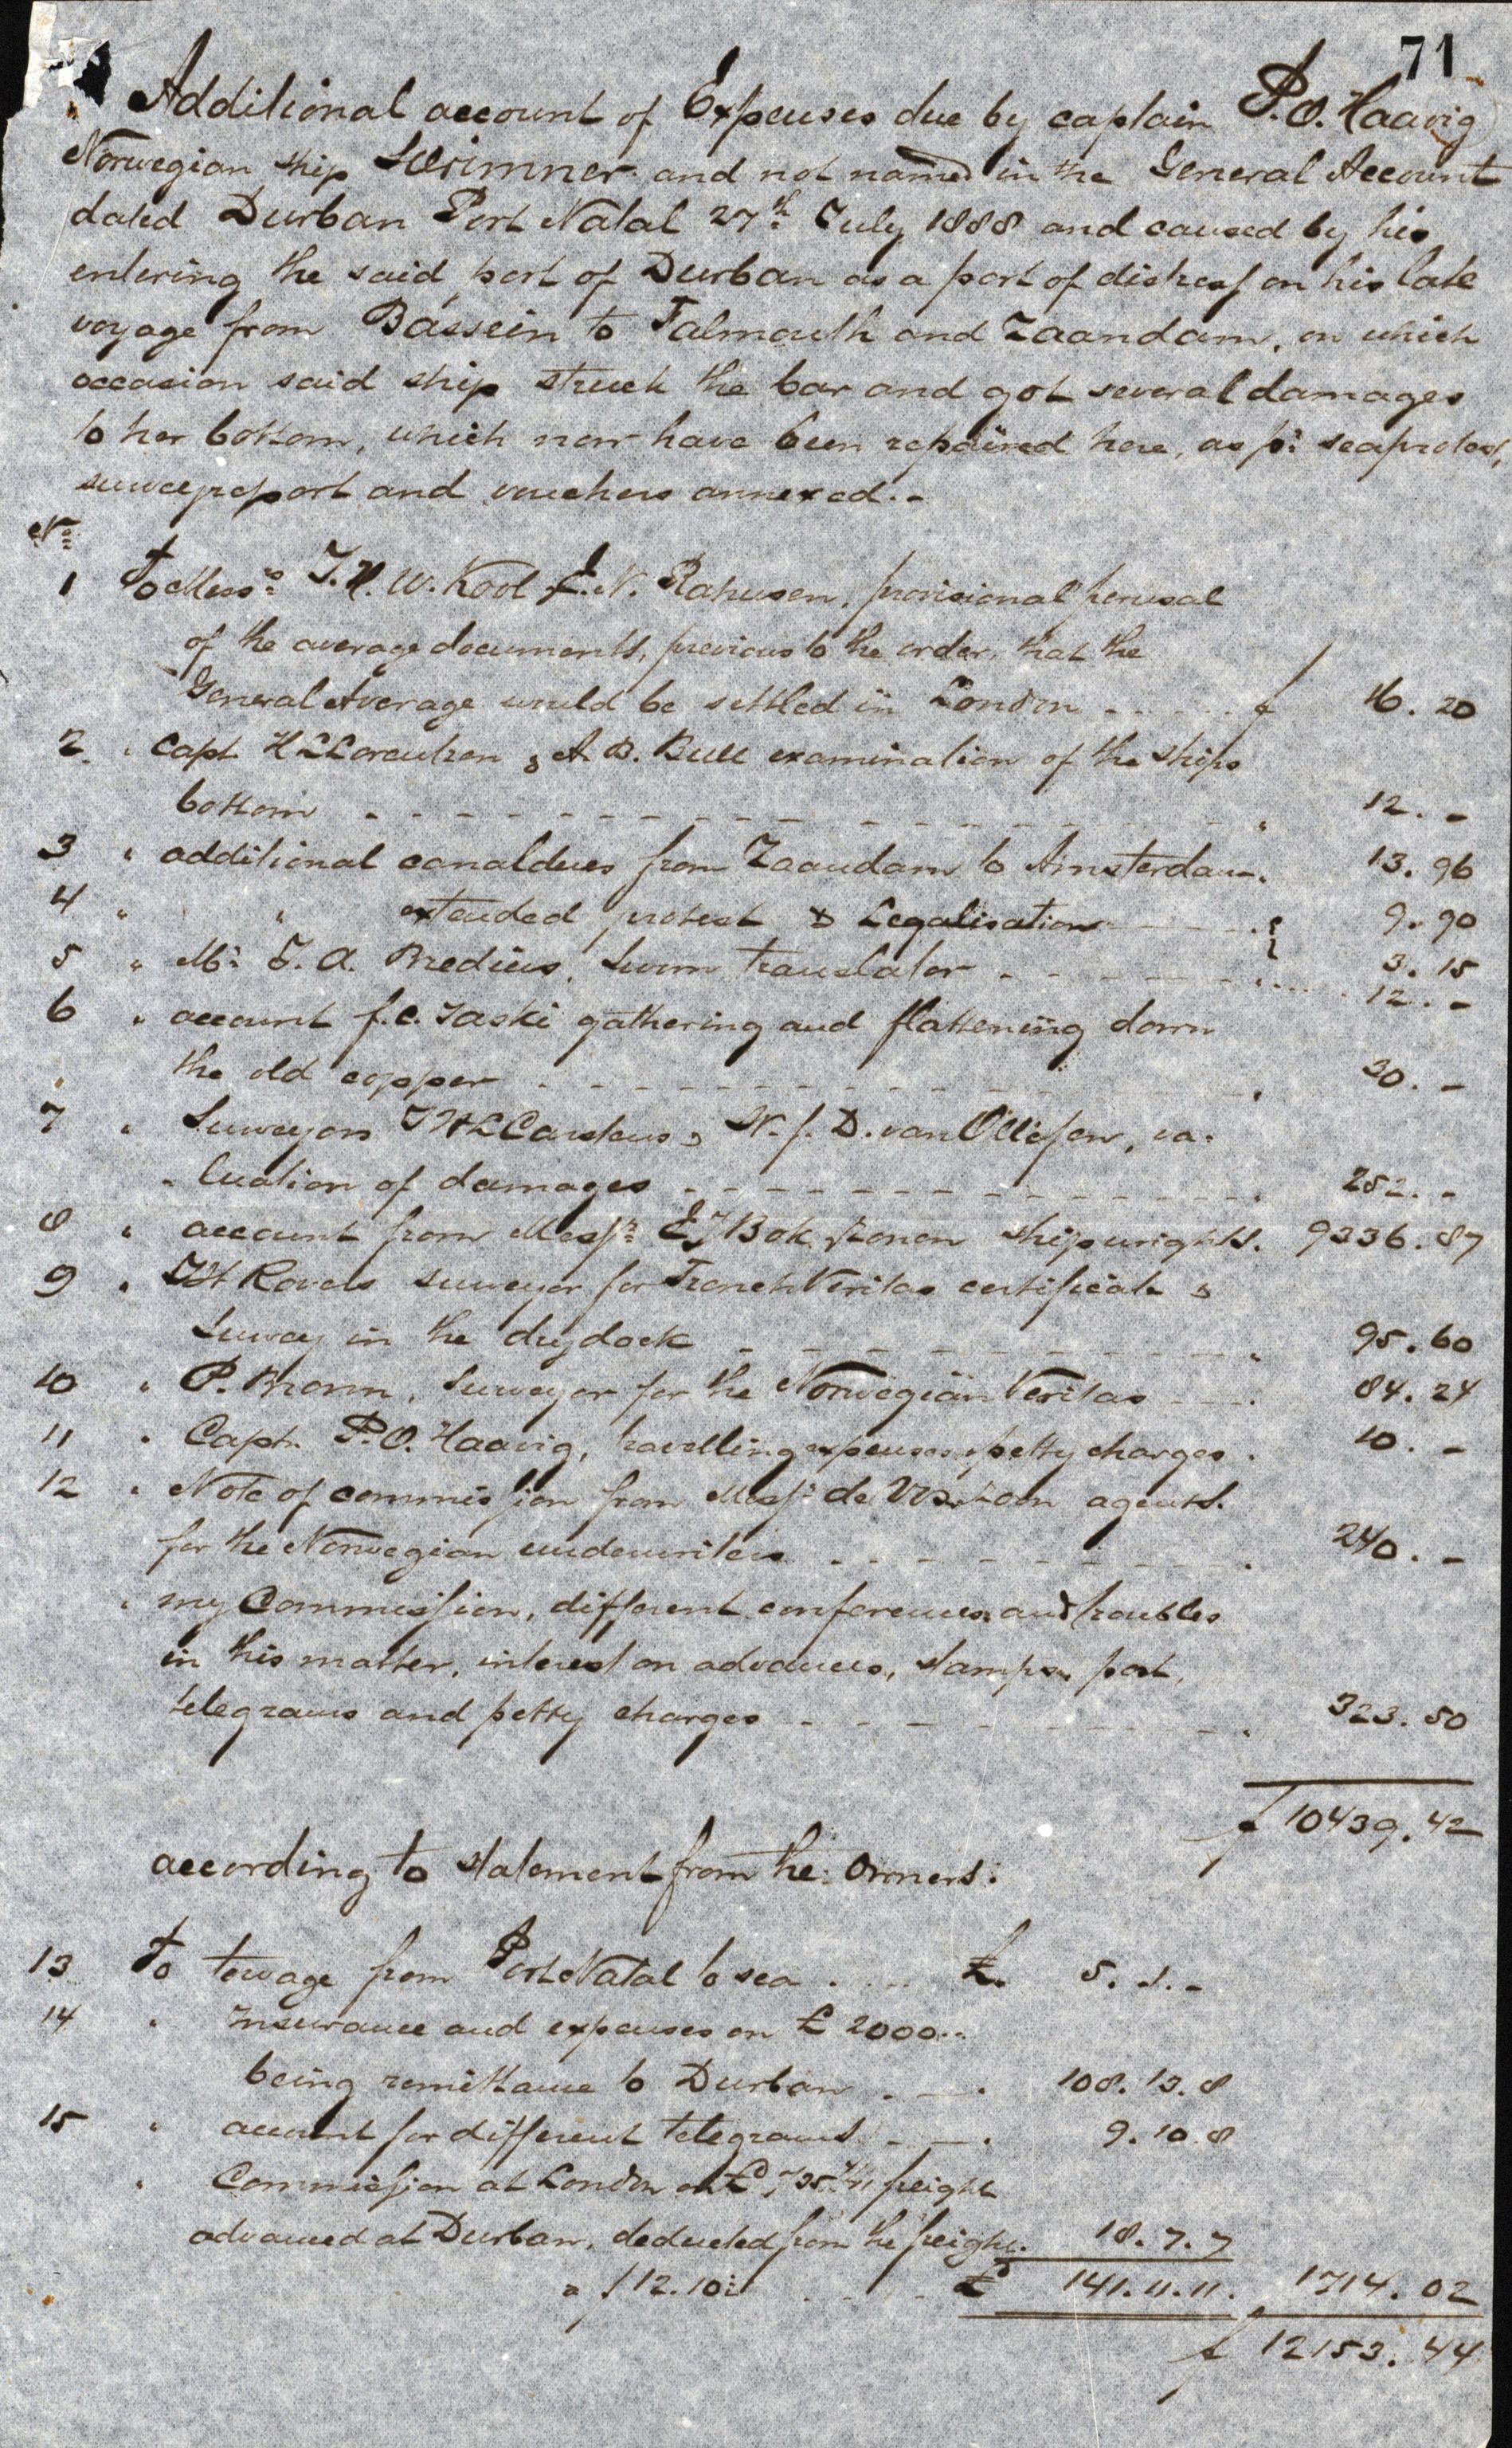 71
Additional account of Expenses due by captain P. O. Haavig
Norwegian ship Scrimner and not named in the General Account
dated Durban Port Natal 27th July 1888 and caused by his
entering the said port of Durban as a port of distress on his late
voyage from Bassein to Falmouth and Zaandam, on which
occasion said ship struck the bar and got several damages
to her bottom, which now have been repaired here, as pr seaprotest,
surveyreport and vouchers annexed.-
No
1 To Messrs T. H. W. Kool & N. Rahusen, provisional perusal
of the average documents, previous to the order, that the
General Average would be settled in London - - - - - f 16. 20
2. " Capt. H L Lorentzen & A. B. Bull examination of the ships
bottom - - - - - - - " 12. -
3 " additional canaldues from Zaandam to Amsterdam. 13. 96
4 " " extended protest & Legalisation - - 9. 90
5 " Mr. S. A. Bredius, Sworn translator - - - - 3. 15
12. -
6 " account f. C. Taski gathering and flattening down
" the old copper - - - - - - - 30. -
7 " Surveyors T H L Carstens & W. f. D. van Ollefen, va-
" luation of damages - - - - - - 252. -
8 " account from Messrs E J Bok & Zonen shipwrights. 9336. 87
9 " Rovers surveyor for French Veritas certificate &
Survey in the drydock - - - - - - 95. 60
10 " P. Brown, Surveyor for the Norwegian Veritas - - 84. 24
11 " Capt. P. O. Haavig, travelling expenses & petty charges . 10. -
12 " Note of commission from Messrs de Vos & Zoon agents.
for the Norwegian underwriters - - - - - - 240. -
" my Commission, different conferences and troubles
in this matter, interest on advances, stamps, post,
telegrams and petty charges - - - - - - 323. 50
f 10439. 42
according to statement from the Owners:
13 To towage from Port Natal to sea . . . . £. 5. 1. -
14 " Insurance and expenses on £ 2000.-
being remittance to Durban - - . 108. 13. 8
15 " account for different telegrams - - . 9. 10. 8
" Commission at London on £ freight
advanced at Durban, deducted from the freight. 18. 7. 7
a f 12. 10 - - - - £ 141. 11. 11. 1714. 02
f 12153. 44